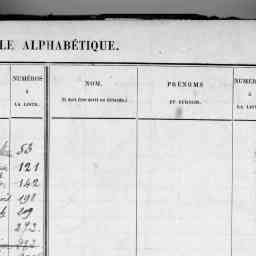 LE ALPHABÉTIQUE.
NUMÉROS
A
LA LISTE.
NOM.
(Il doit être écrit en bâtarde.)
PRÉNOMS
ET SURNOM.
NUMÉR
A
LA LIST
53
121
142
198
209
272